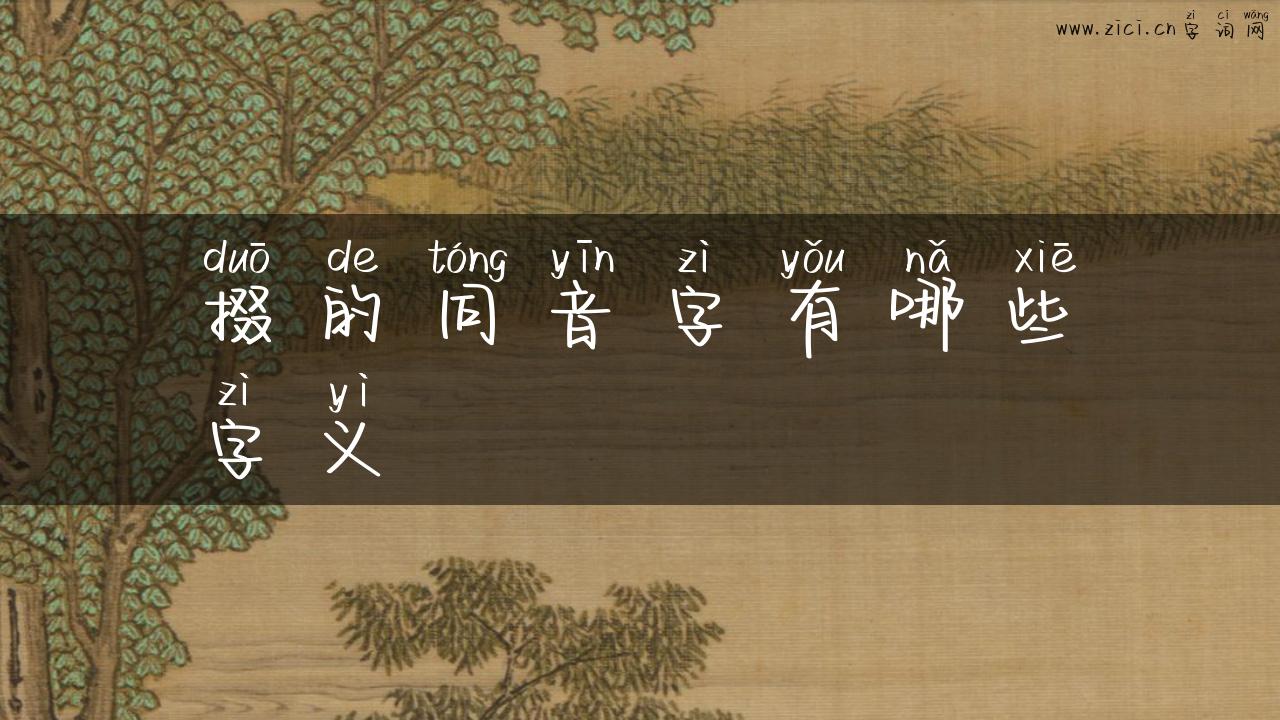 zì cí wǎng
www.zici.cn 字词网
duō de tóng yīn zì yǒu nǎ xiē
掇的同音字有哪些
zì yì
字义